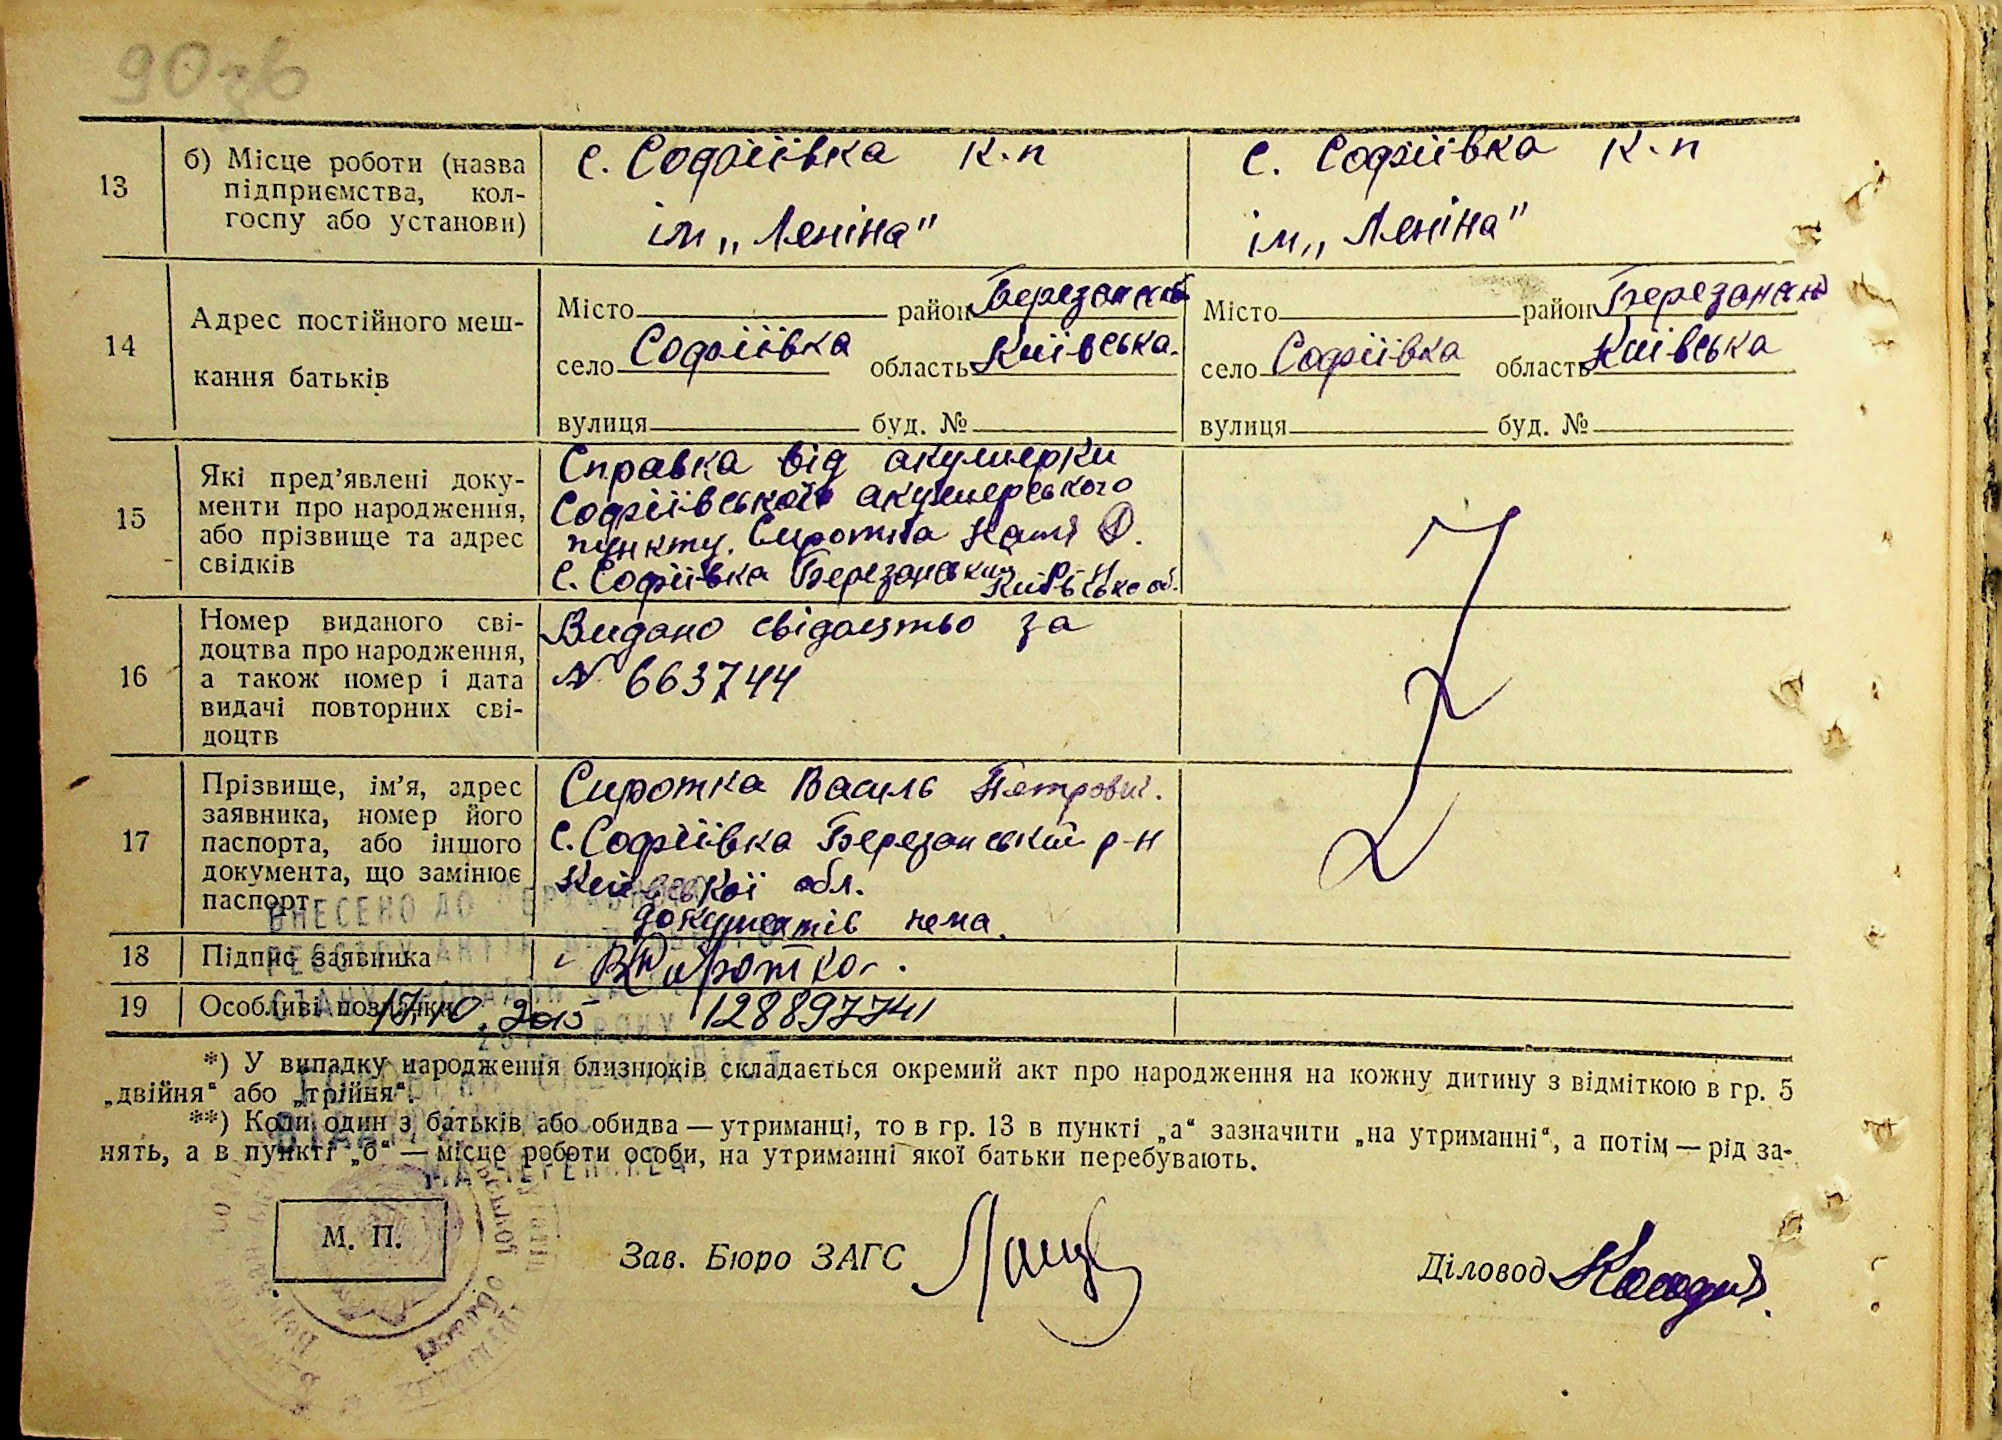 90зв
13
б) Місце роботи (назва
підприємства, кол-
госпу або установи)
с. Софіївка к.п
ім „Леніна"
с. Софіївка к.п
ім „Леніна"
14
Адрес постійного меш-
кання батьків
Місто район Березанськ
село Софіївка область Київська.
вулиця буд. №
Місто район
село Софіївка область Київська
вулиця буд. №
15
Які пред'явлені доку-
менти про народження,
або прізвище та адрес
свідків
Справка від акушерки
Софіївського акушерського
пункту. Сиротка
с. Софіївка Березанський р-н
16
Номер виданого сві-
доцтва про народження,
а також номер і дата
видачі повторних сві-
доцтв
Видано свідоцтво за
№ 663744
17
Прізвище, ім'я, адрес
заявника, номер його
паспорта, або іншого
документа, що замінює
паспорт
Сиротка Василь Петрович.
с. Софіївка Березанський р-н
Київської обл.
документів нема.
18
Підпис заявника
19
Особливі позначки
17.10.2015 128897741
ВНЕСЕНО ДО ДЕРЖАВНОГО
*) У випадку народження близнюків складається окремий акт про народження на кожну дитину з відміткою в гр. 5
„двійня“ або „трійня“.
**) Коли один з батьків або обидва — утриманці, то в гр. 13 в пункті „а“ зазначити „на утриманні“, а потім — рід за-
нять, а в пункті „б“ — місце роботи особи, на утриманні якої батьки перебувають.
М. П.
Зав. Бюро ЗАГС
Діловод